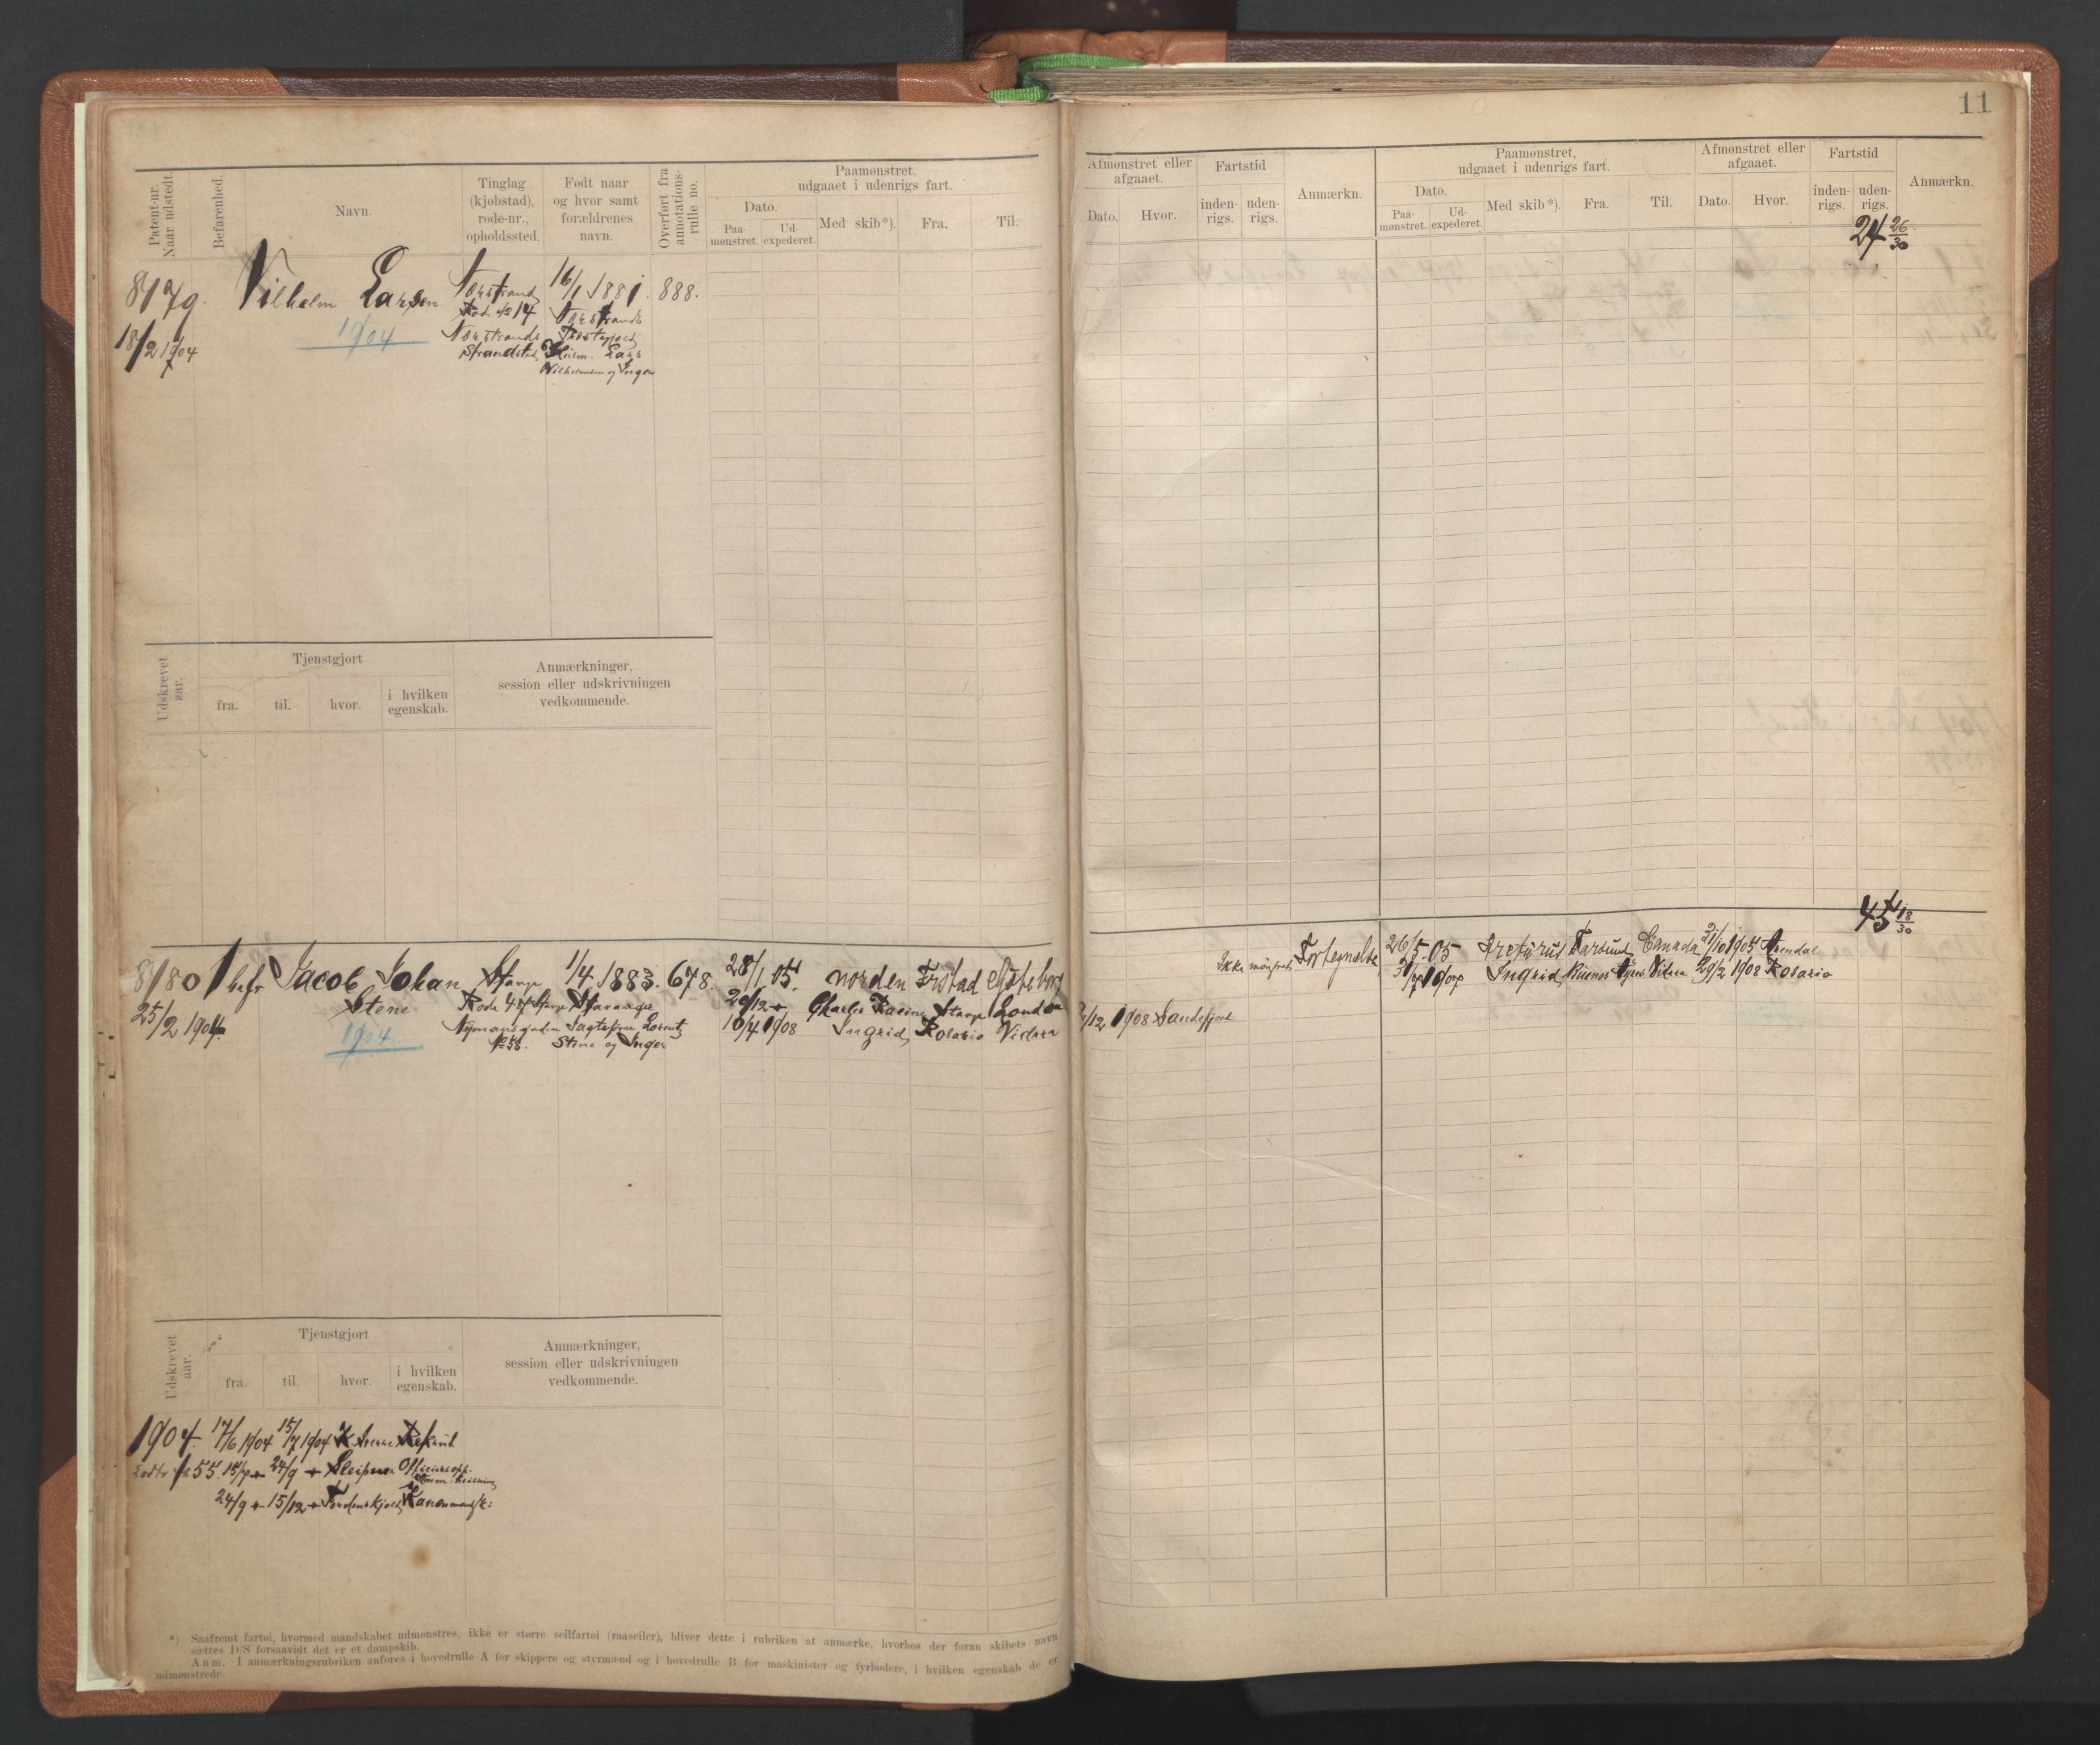 11
Patent-nr. Naar udstedt.
Befarenhed.
Navn.
Tinglag (kjøbstad), rode-nr., opholdssted.
Født naar og hvor samt forældrenes navn.
Overført fra annotations-rulle no.
Paamønstret, udgaaet i udenrigs fart.
Dato.
Paa-mønstret.
Ud-expederet.
Med skib*).
Fra.
Til.
Afmønstret eller afgaaet.
Dato.
Hvor.
Fartstid
inden-rigs.
uden-rigs.
Anmærkn.
Paamønstret, udgaaet i udenrigs fart.
Dato.
Paa-mønstret.
Ud-expederet.
Med skib*).
Fra.
Til.
Afmønstret eller afgaaet.
Dato.
Hvor.
Fartstid
inden-rigs.
uden-rigs.
Anmærkn.
24 26/30
8179.
18/2 1904
Vilhelm Larsen
1904
Nerstrand
Rode No 14
Nerstrands
Strandsted
16/1 1881.
Nerstrands
Præstegjeld
Lars
Vilhelmsen og Inger
888.
Udskrevet aar.
Tjenstgjort
fra.
til.
hvor.
i hvilken egenskab.
Anmærkninger, session eller udskrivningen vedkommende.
45 18/30
8180
25/2 1904
1 befr
Jacob Johan
Stene
1904
Stavgr
Rode 47 Stavgr
Nymansgaden
No 58.
1/4 1883.
Stavanger
Lorentz
Stene og Inger
678.
28/1 05. Norden Fristad Gøteborg
20/12 Charles Racine Stavgr London
10/4 1908 Ingrid Rosario
Ikke mønstret Fortegnelse
/12 1908 Sandefjord
26/5-05 Arcturus Farsund Canada 21/10 1905 Arendal
1907 Ingrid Buenos Ayres 29/2 1908 Rosario
Udskrevet aar.
Tjenstgjort
fra.
til.
hvor.
i hvilken egenskab.
Anmærkninger, session eller udskrivningen vedkommende.
1904. 17/6 1904 15/7 1904 Rekrut
55. 15/7 24/9 Sleipner
24/9 15/12 Tordenskjold
*) Saafremt fartøi, hvormed mandskabet udmønstres, ikke er større seilfartøi (raaseiler), bliver dette i rubriken at anmærke, hvorhos der foran skibets navn
sættes D/S forsaavidt det er et dampskib.
Anm. I anmærkningsrubriken anføres i hovedrulle A for skippere og styrmænd og i hovedrulle B for maskinister og fyrbødere, i hvilken egenskab de er
udmønstrede.